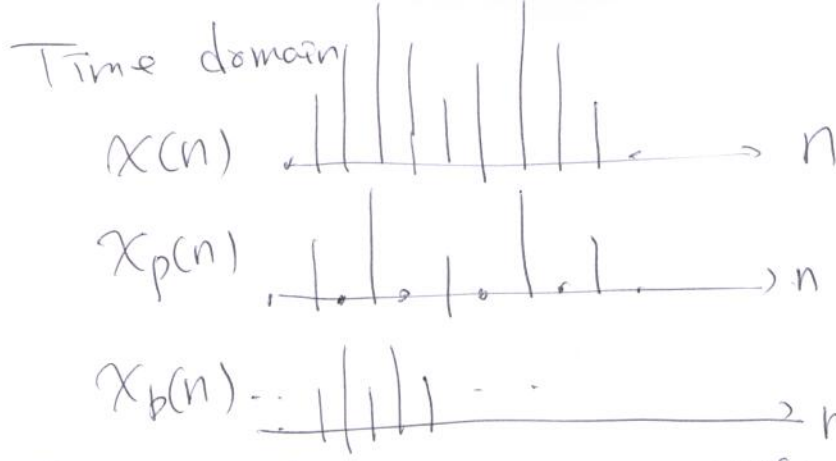 Time domain
x(n) n
xp(n) n
xb(n) n